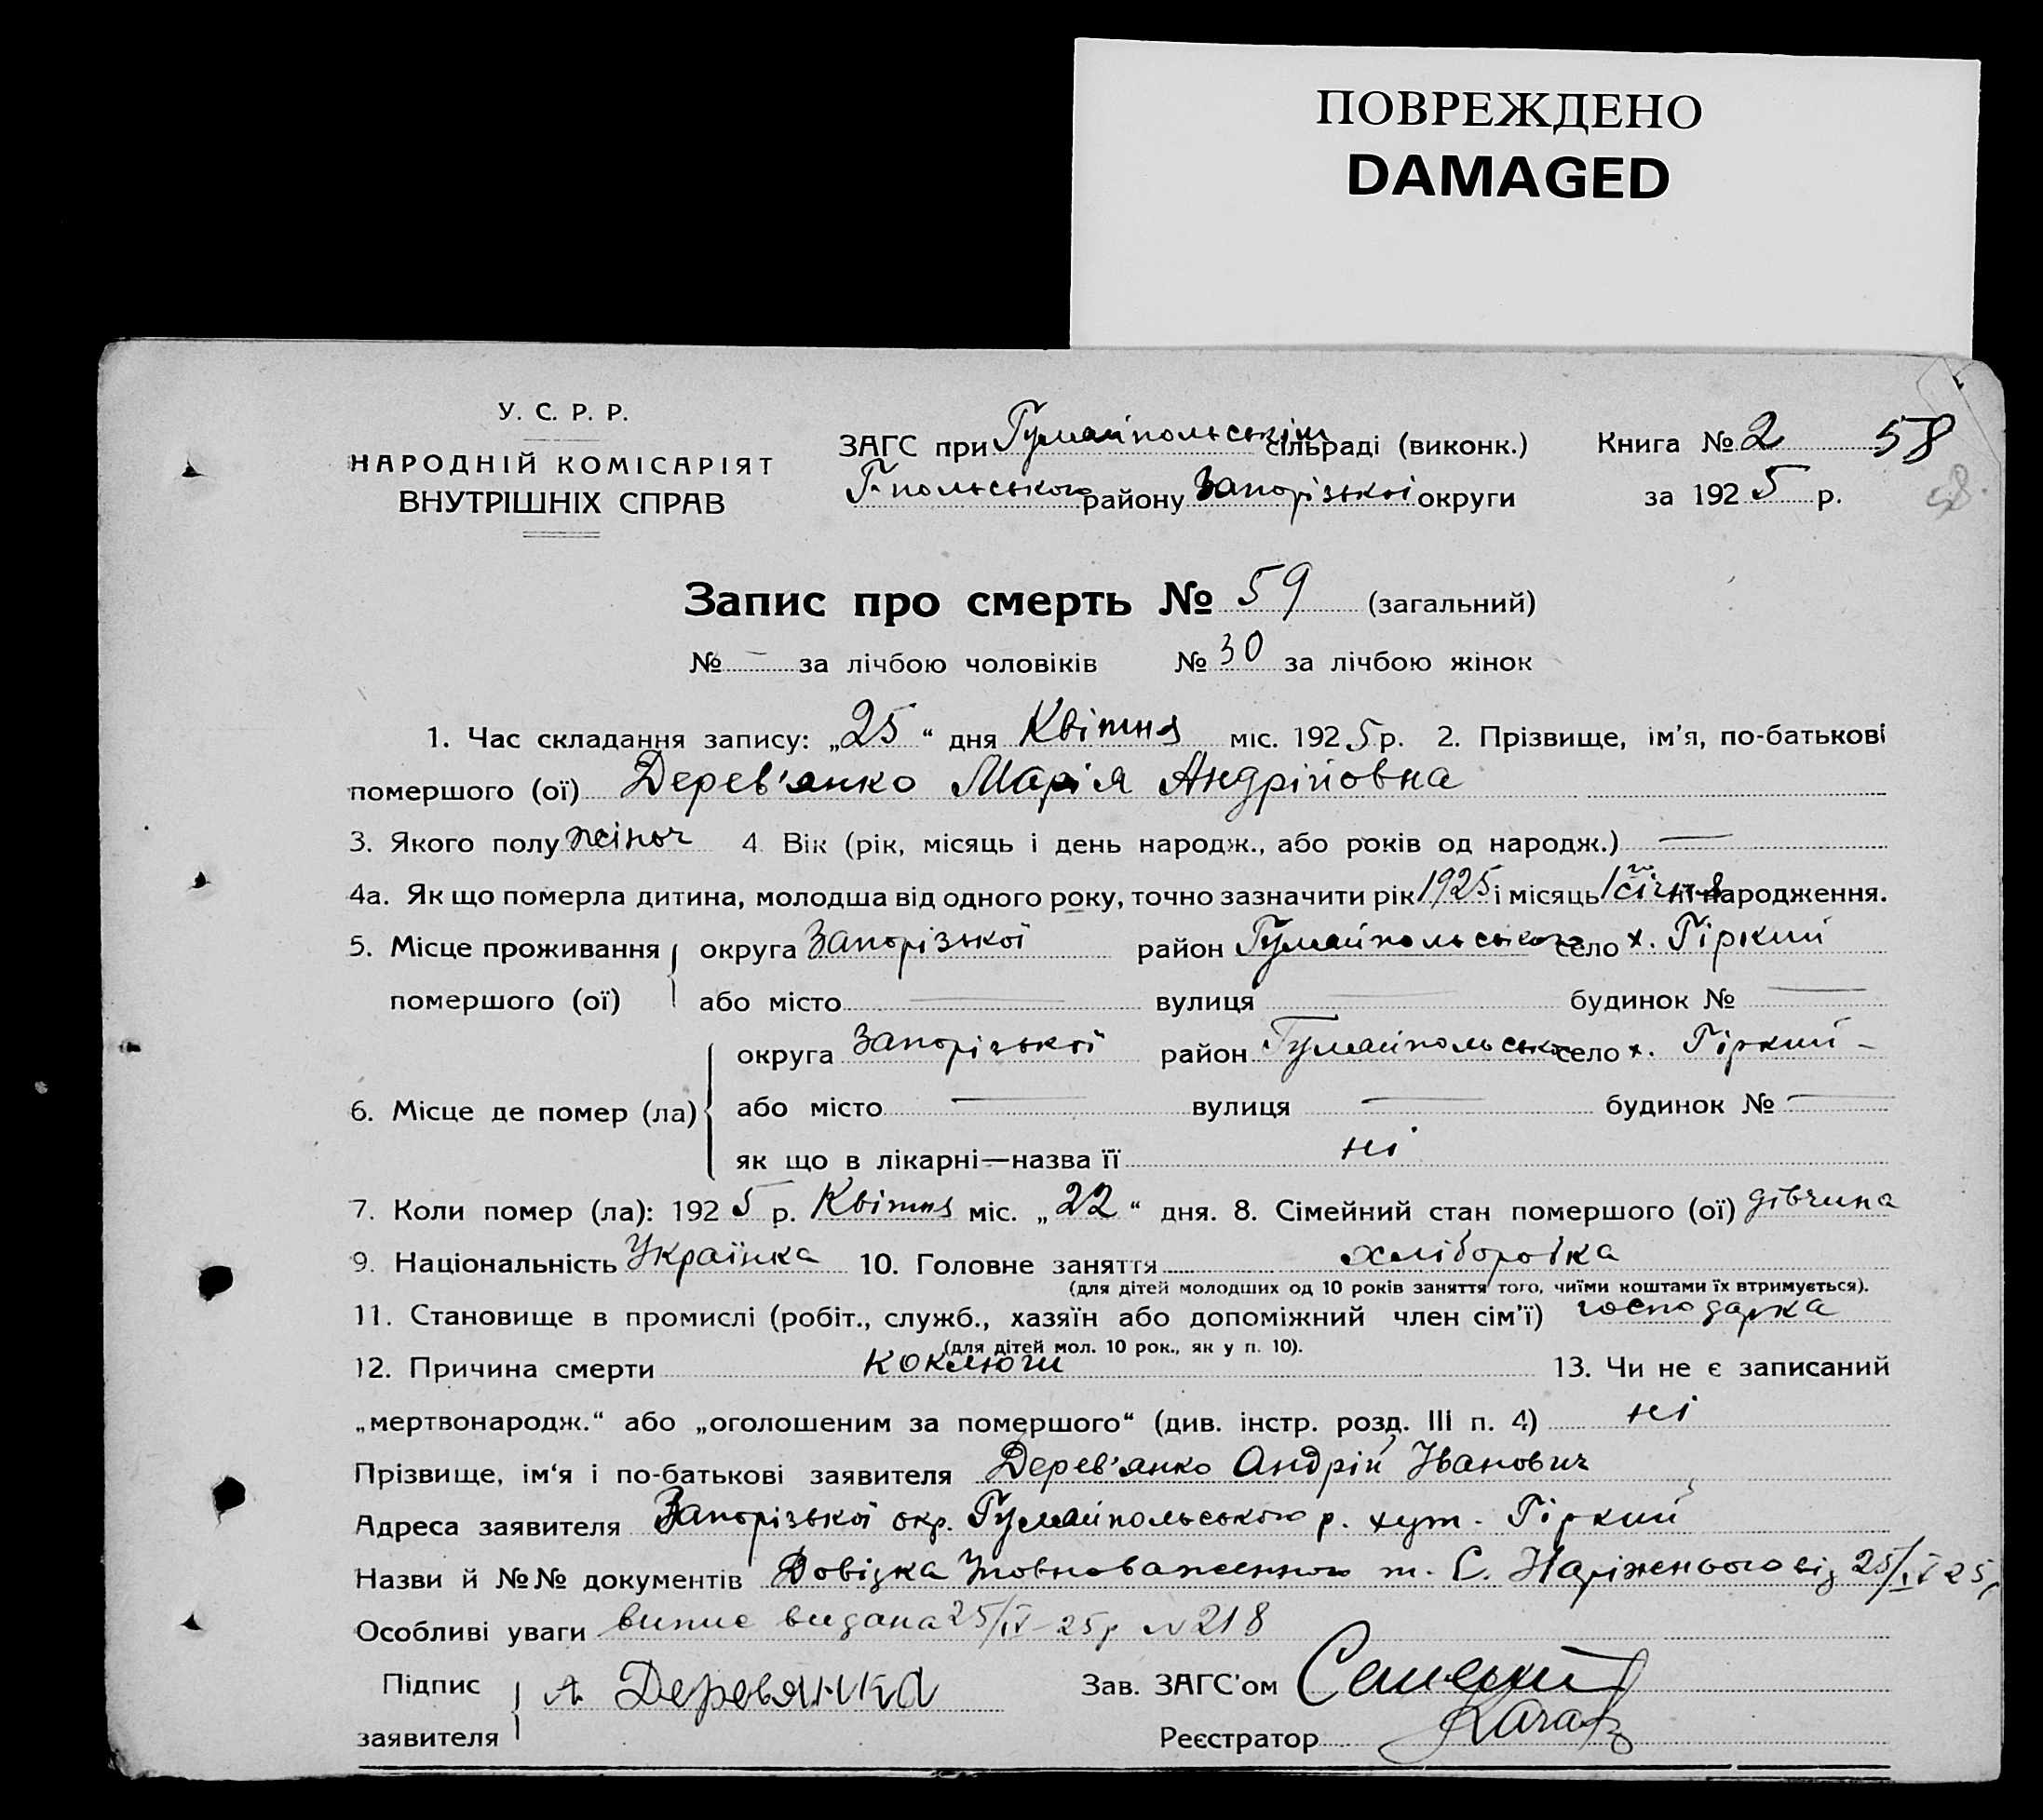 ПОВРЕЖДЕНО
DAMAGED
У. С. Р. Р.
НАРОДНІЙ КОМІСАРІЯТ
ВНУТРІШНІХ СПРАВ
ЗАГС при Гуляйпольськім сільраді (виконк.)
Г-польського району Запорізької округи
Книга № 2 58
за 1925 р.
Запис про смерть № 59 (загальний)
№ — за лічбою чоловіків № 30 за лічбою жінок
1. Час складання запису: „25“ дня Квітня міс. 1925 р. 2. Прізвище, ім'я, по-батькові
помершого (ої) Дерев'янко Марія Андрійовна
3. Якого полу жіноч 4. Вік (рік, місяць і день народж., або років од народж.) —
4а. Як що померла дитина, молодша від одного року, точно зазначити рік 1925 і місяць 1го січня народження.
5. Місце проживання округа Запорізької район Гуляйпольського село х. Гіркий
помершого (ої) або місто — вулиця — будинок № —
округа Запорізької район Гуляйпольсько село х. Гіркий –
6. Місце де помер (ла) або місто — вулиця — будинок № —
як що в лікарні—назва її ні
7. Коли помер (ла): 1925 р. Квітня міс. „22“ дня. 8. Сімейний стан помершого (ої) дівчина
9. Національність Українка 10. Головне заняття хліборобка
(для дітей молодших од 10 років заняття того, чиїми коштами їх втримується).
11. Становище в промислі (робіт., служб., хазяїн або допоміжний член сім'ї) господарка
(для дітей мол. 10 рок., як у п. 10).
12. Причина смерти коклюш 13. Чи не є записаний
„мертвонародж.“ або „оголошеним за помершого“ (див. інстр. розд. III п. 4) ні
Прізвище, ім'я і по-батькові заявителя Дерев'янко Андрій Іванович
Адреса заявителя Запорізької окр. Гуляйпольського р. хут. Гіркий
Назви й №№ документів Довідка Уповноваженного т. С. Наріжнього від 25/IV 25р
Особливі уваги випис видана 25/IV–25р N 218
Підпис заявителя А Деревянка
Зав. ЗАГС'ом
Реєстратор